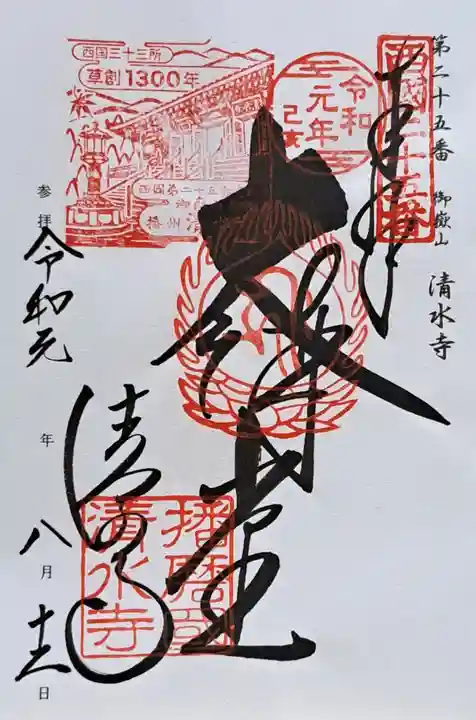 第二十五番 御嶽山 清水寺
西國二十五番
奉拝
西国三十三所
草創1300年
西国第二十五
播州 清
令和
元年
己亥
大悲殿
播磨國
清水寺
清水寺
参拝 令和元年 八月 十二日